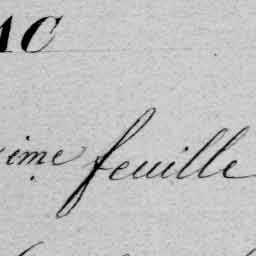 AC
ime feuille